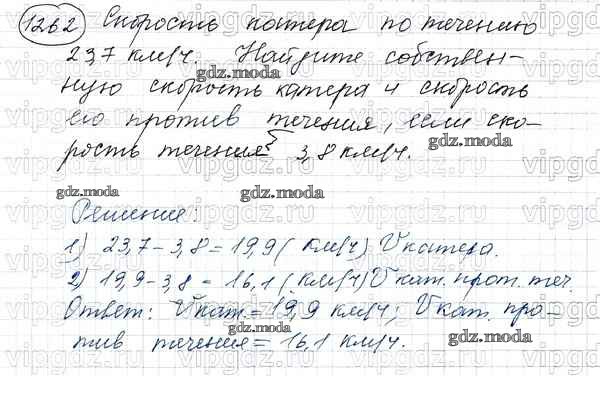 1262 Скорость катера по течению
23,7 км/ч. Найдите собствен-
ную скорость катера и скорость
его против течения, если ско-
рость течения 3,8 км/ч.
Решение:
1) 23,7-3,8=19,9 (км/ч) Vкатера.
2) 19,9-3,8=16,1 (км/ч) Vкат. прот. теч.
Ответ: Vкат.=19,9 км/ч; Vкат. про-
тив течения=16,1 км/ч.
gdz.moda
gdz.moda
gdz.moda
gdz.moda
gdz.moda
gdz.moda
gdz.moda
vipgdz.ru